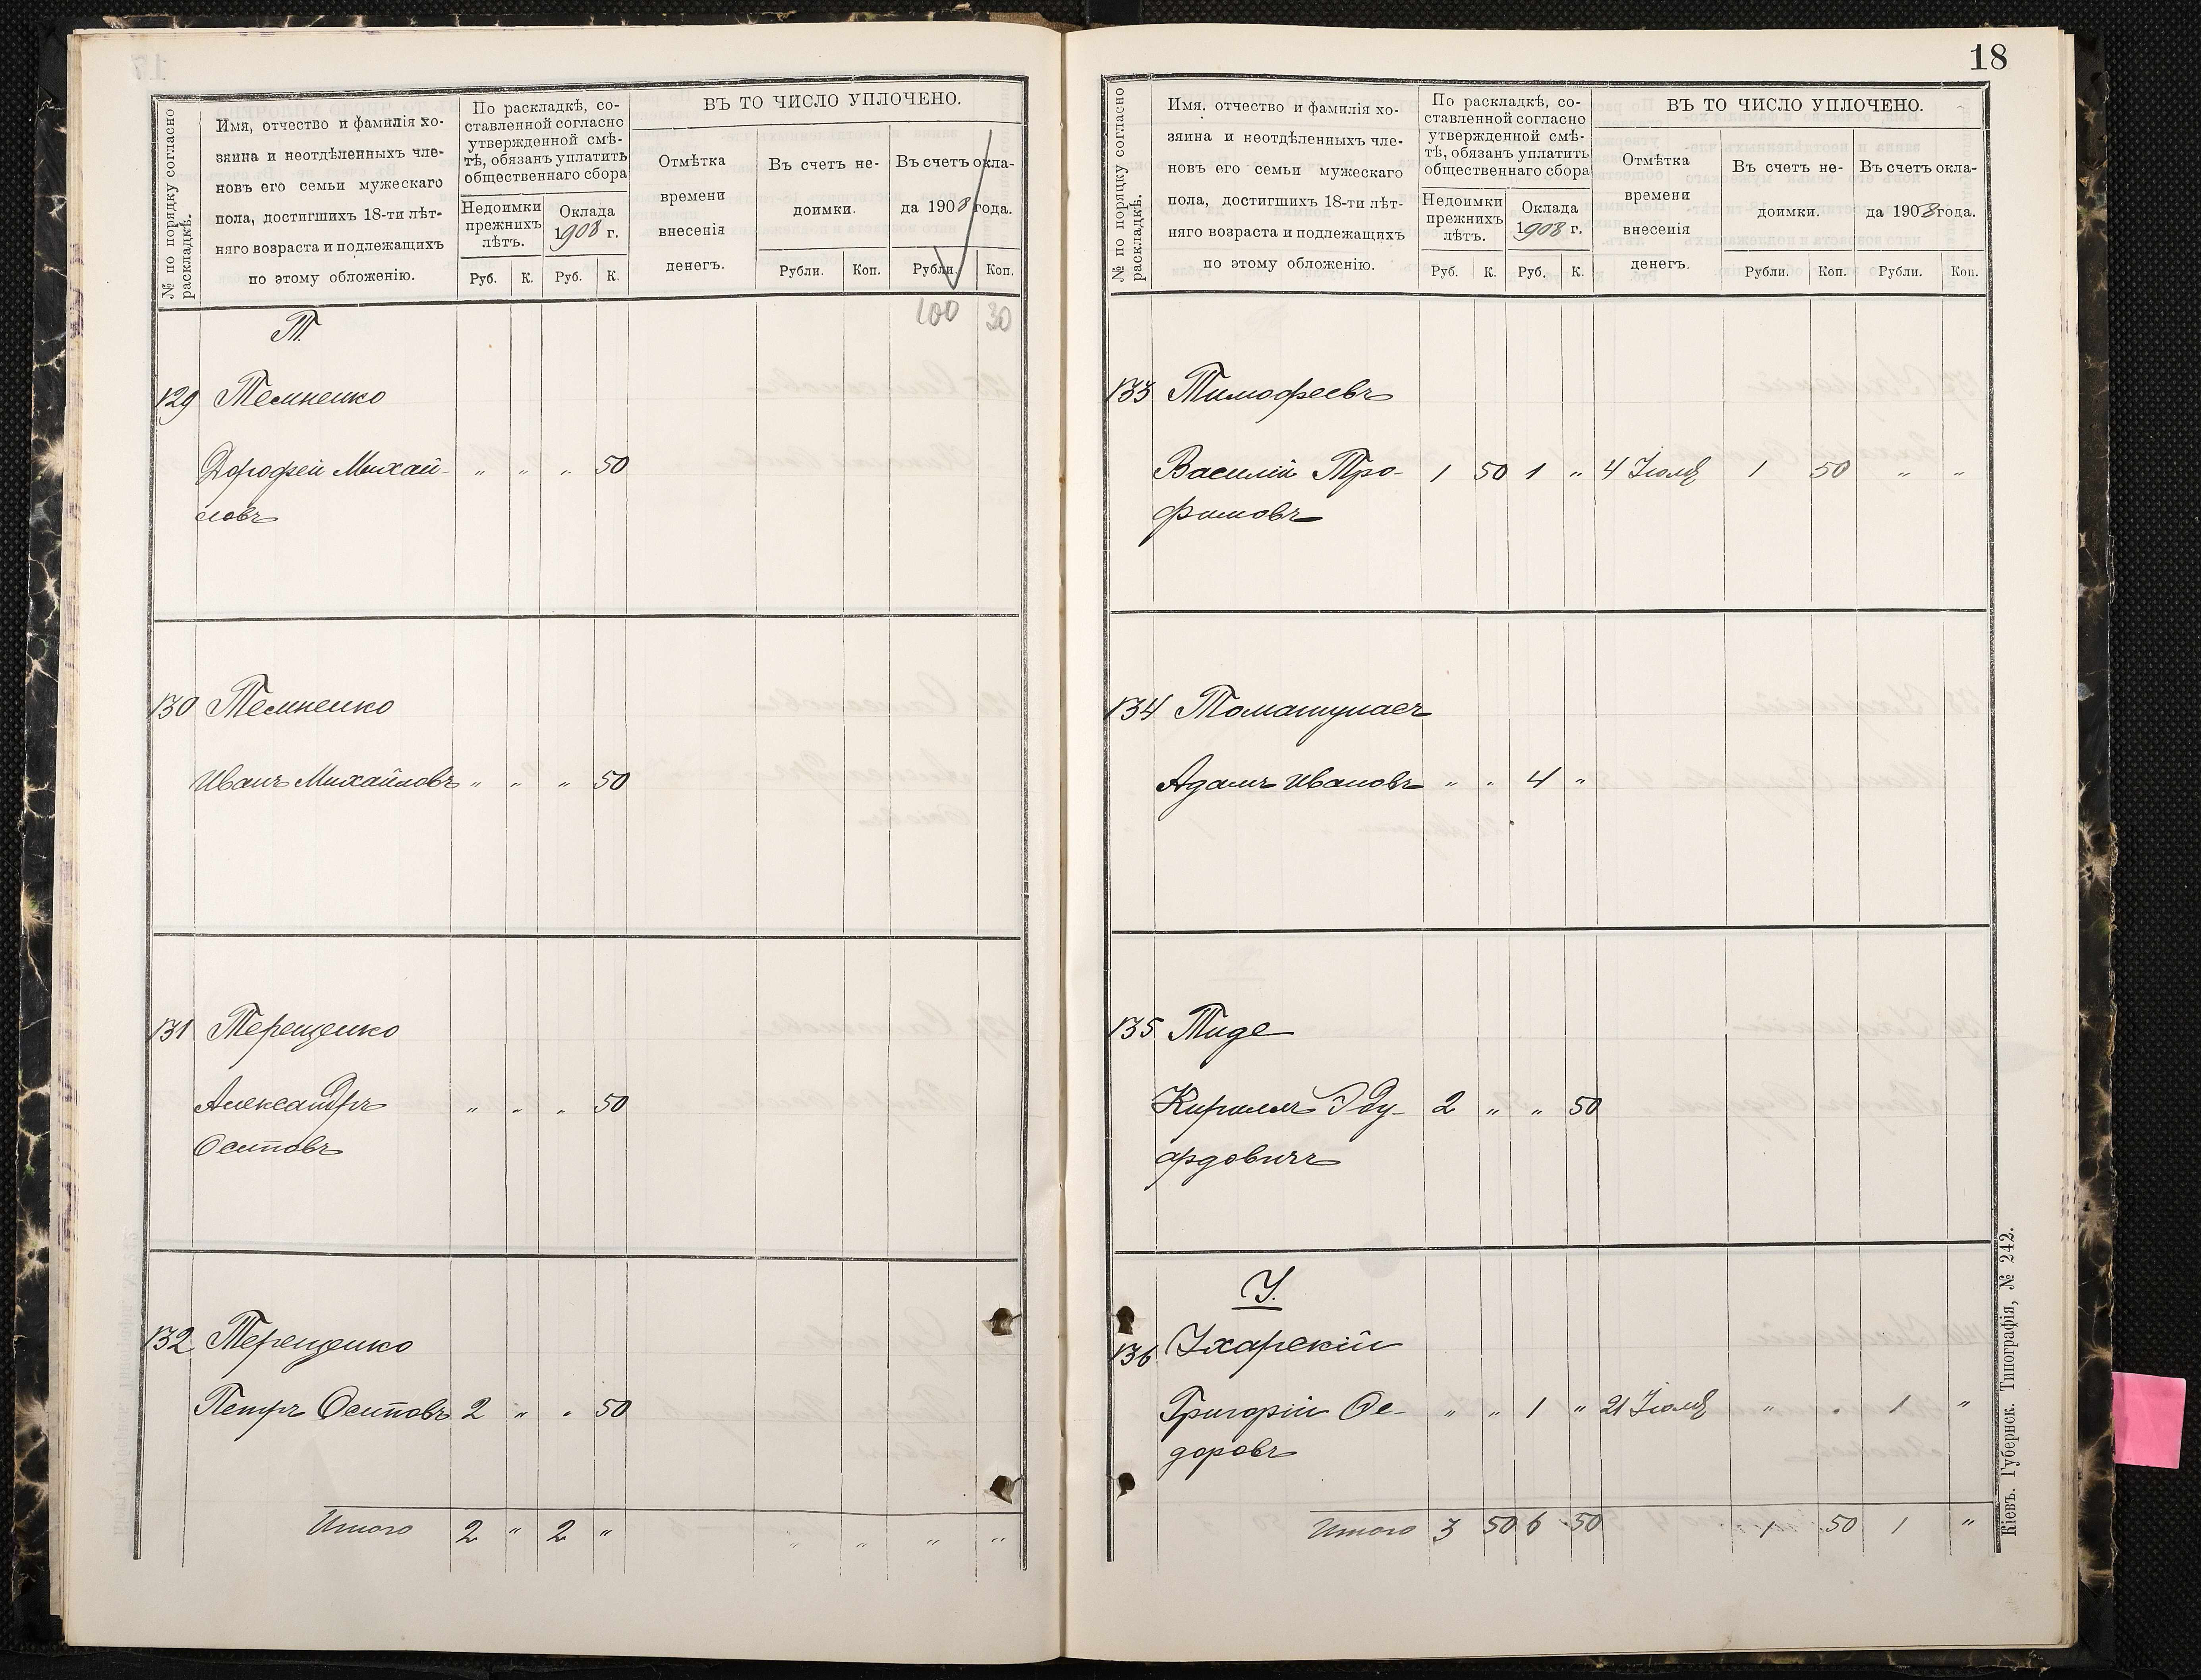 № по порядку согласно
раскладкѣ.
Имя, отчество и фамилія хо-
зяина и неотдѣленныхъ чле-
новъ его семьи мужескаго
пола, достигшихъ 18-ти лѣт-
няго возраста и подлежащихъ
по этому обложенію.
По раскладкѣ, со-
ставленной согласно
утвержденной смѣ-
тѣ, обязанъ уплатить
общественнаго сбора
Недоимки
прежнихъ
лѣтъ.
Оклада
1908 г.
Руб. К. Руб. К.
ВЪ ТО ЧИСЛО УПЛОЧЕНО.
Отмѣтка
времени
внесенія
денегъ.
Въ счетъ не-
доимки.
Въ счетъ окла-
да 1908 года.
Рубли. Коп. Рубли. Коп.
100 30
Т.
129 Темненко
Дорофей Михай- " " " 50
ловъ
130 Темненко
Иванъ Михайловъ " " " 50
131 Терещенко
Александръ " " " 50
Осиповъ
132 Терещенко
Петръ Осиповъ 2 " " 50
Итого 2 " 2 " " " " "
18
№ по порядку согласно
раскладкѣ.
Имя, отчество и фамилія хо-
зяина и неотдѣленныхъ чле-
новъ его семьи мужескаго
пола, достигшихъ 18-ти лѣт-
няго возраста и подлежащихъ
по этому обложенію.
По раскладкѣ, со-
ставленной согласно
утвержденной смѣ-
тѣ, обязанъ уплатить
общественнаго сбора
Недоимки
прежнихъ
лѣтъ.
Оклада
1908 г.
Руб. К. Руб. К.
ВЪ ТО ЧИСЛО УПЛОЧЕНО.
Отмѣтка
времени
внесенія
денегъ.
Въ счетъ не-
доимки.
Въ счетъ окла-
да 1908 года.
Рубли. Коп. Рубли. Коп.
133 Тимофеевъ
Василій Тро- 1 50 1 " 4 Іюля 1 50 " "
фимовъ
134 Томашунаеъ
Адамъ Ивановъ " " 4 "
135 Тиде
Кириллъ Эду- 2 " " 50
ардовичъ
У.
136 Ухарскій
Григорій Ѳе- " " 1 " 21 Іюля " " 1 "
доровъ
Итого 3 50 6 50 1 50 1 "
Кіевъ. Губернск. Типографія, № 242.